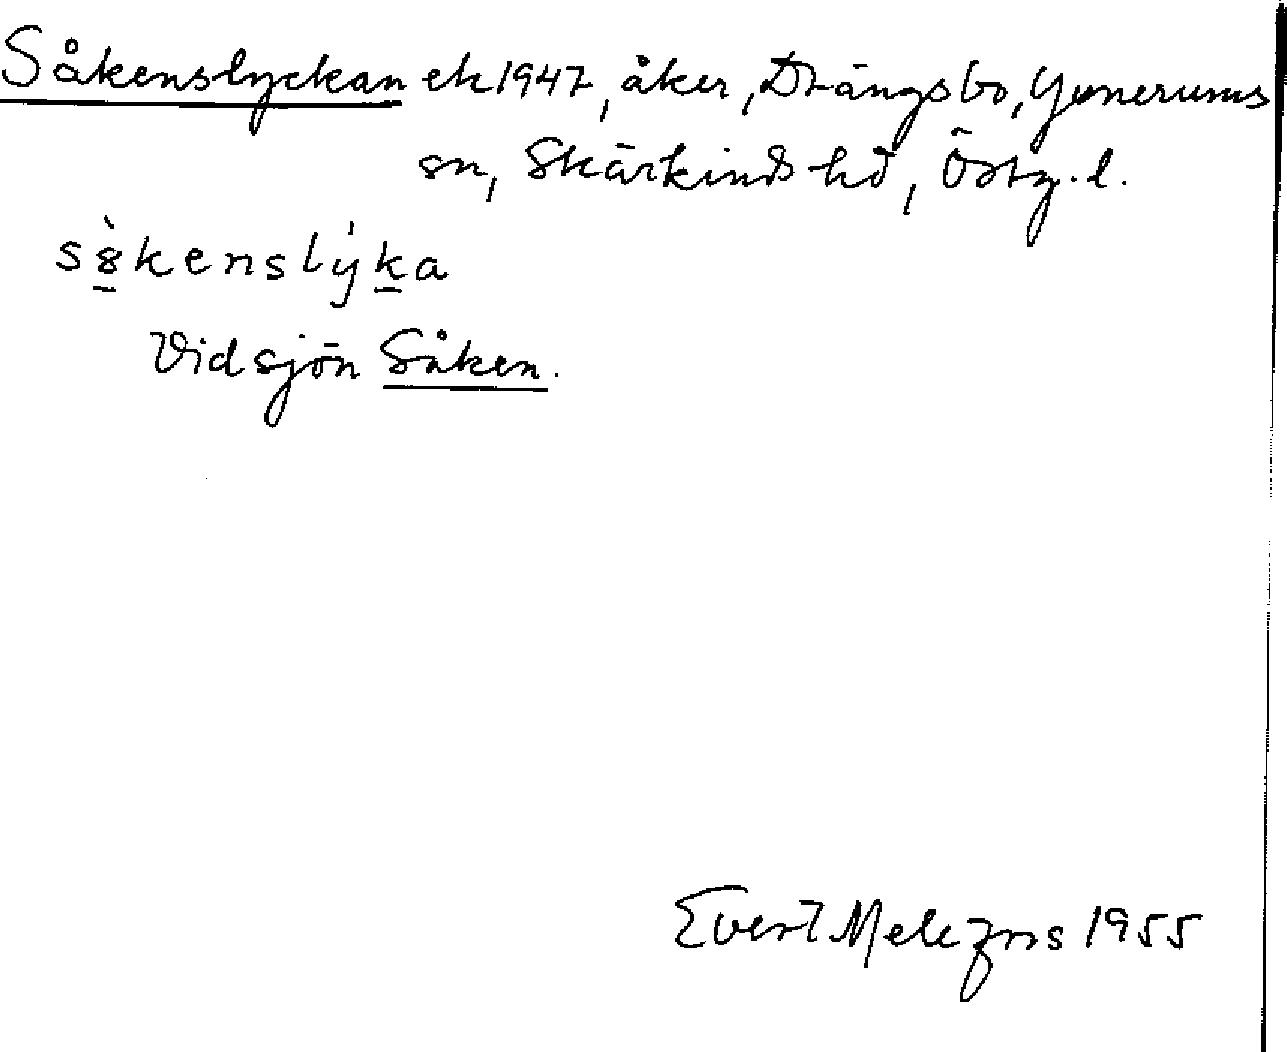 Såkenslyckan ek 1947, åker, Drängsbo, Yxnerums
sn, Skärkinds hd, Östg. l.
sò̱kenslýḵa
Vid sjön Såken.
Evert Melefors 1955